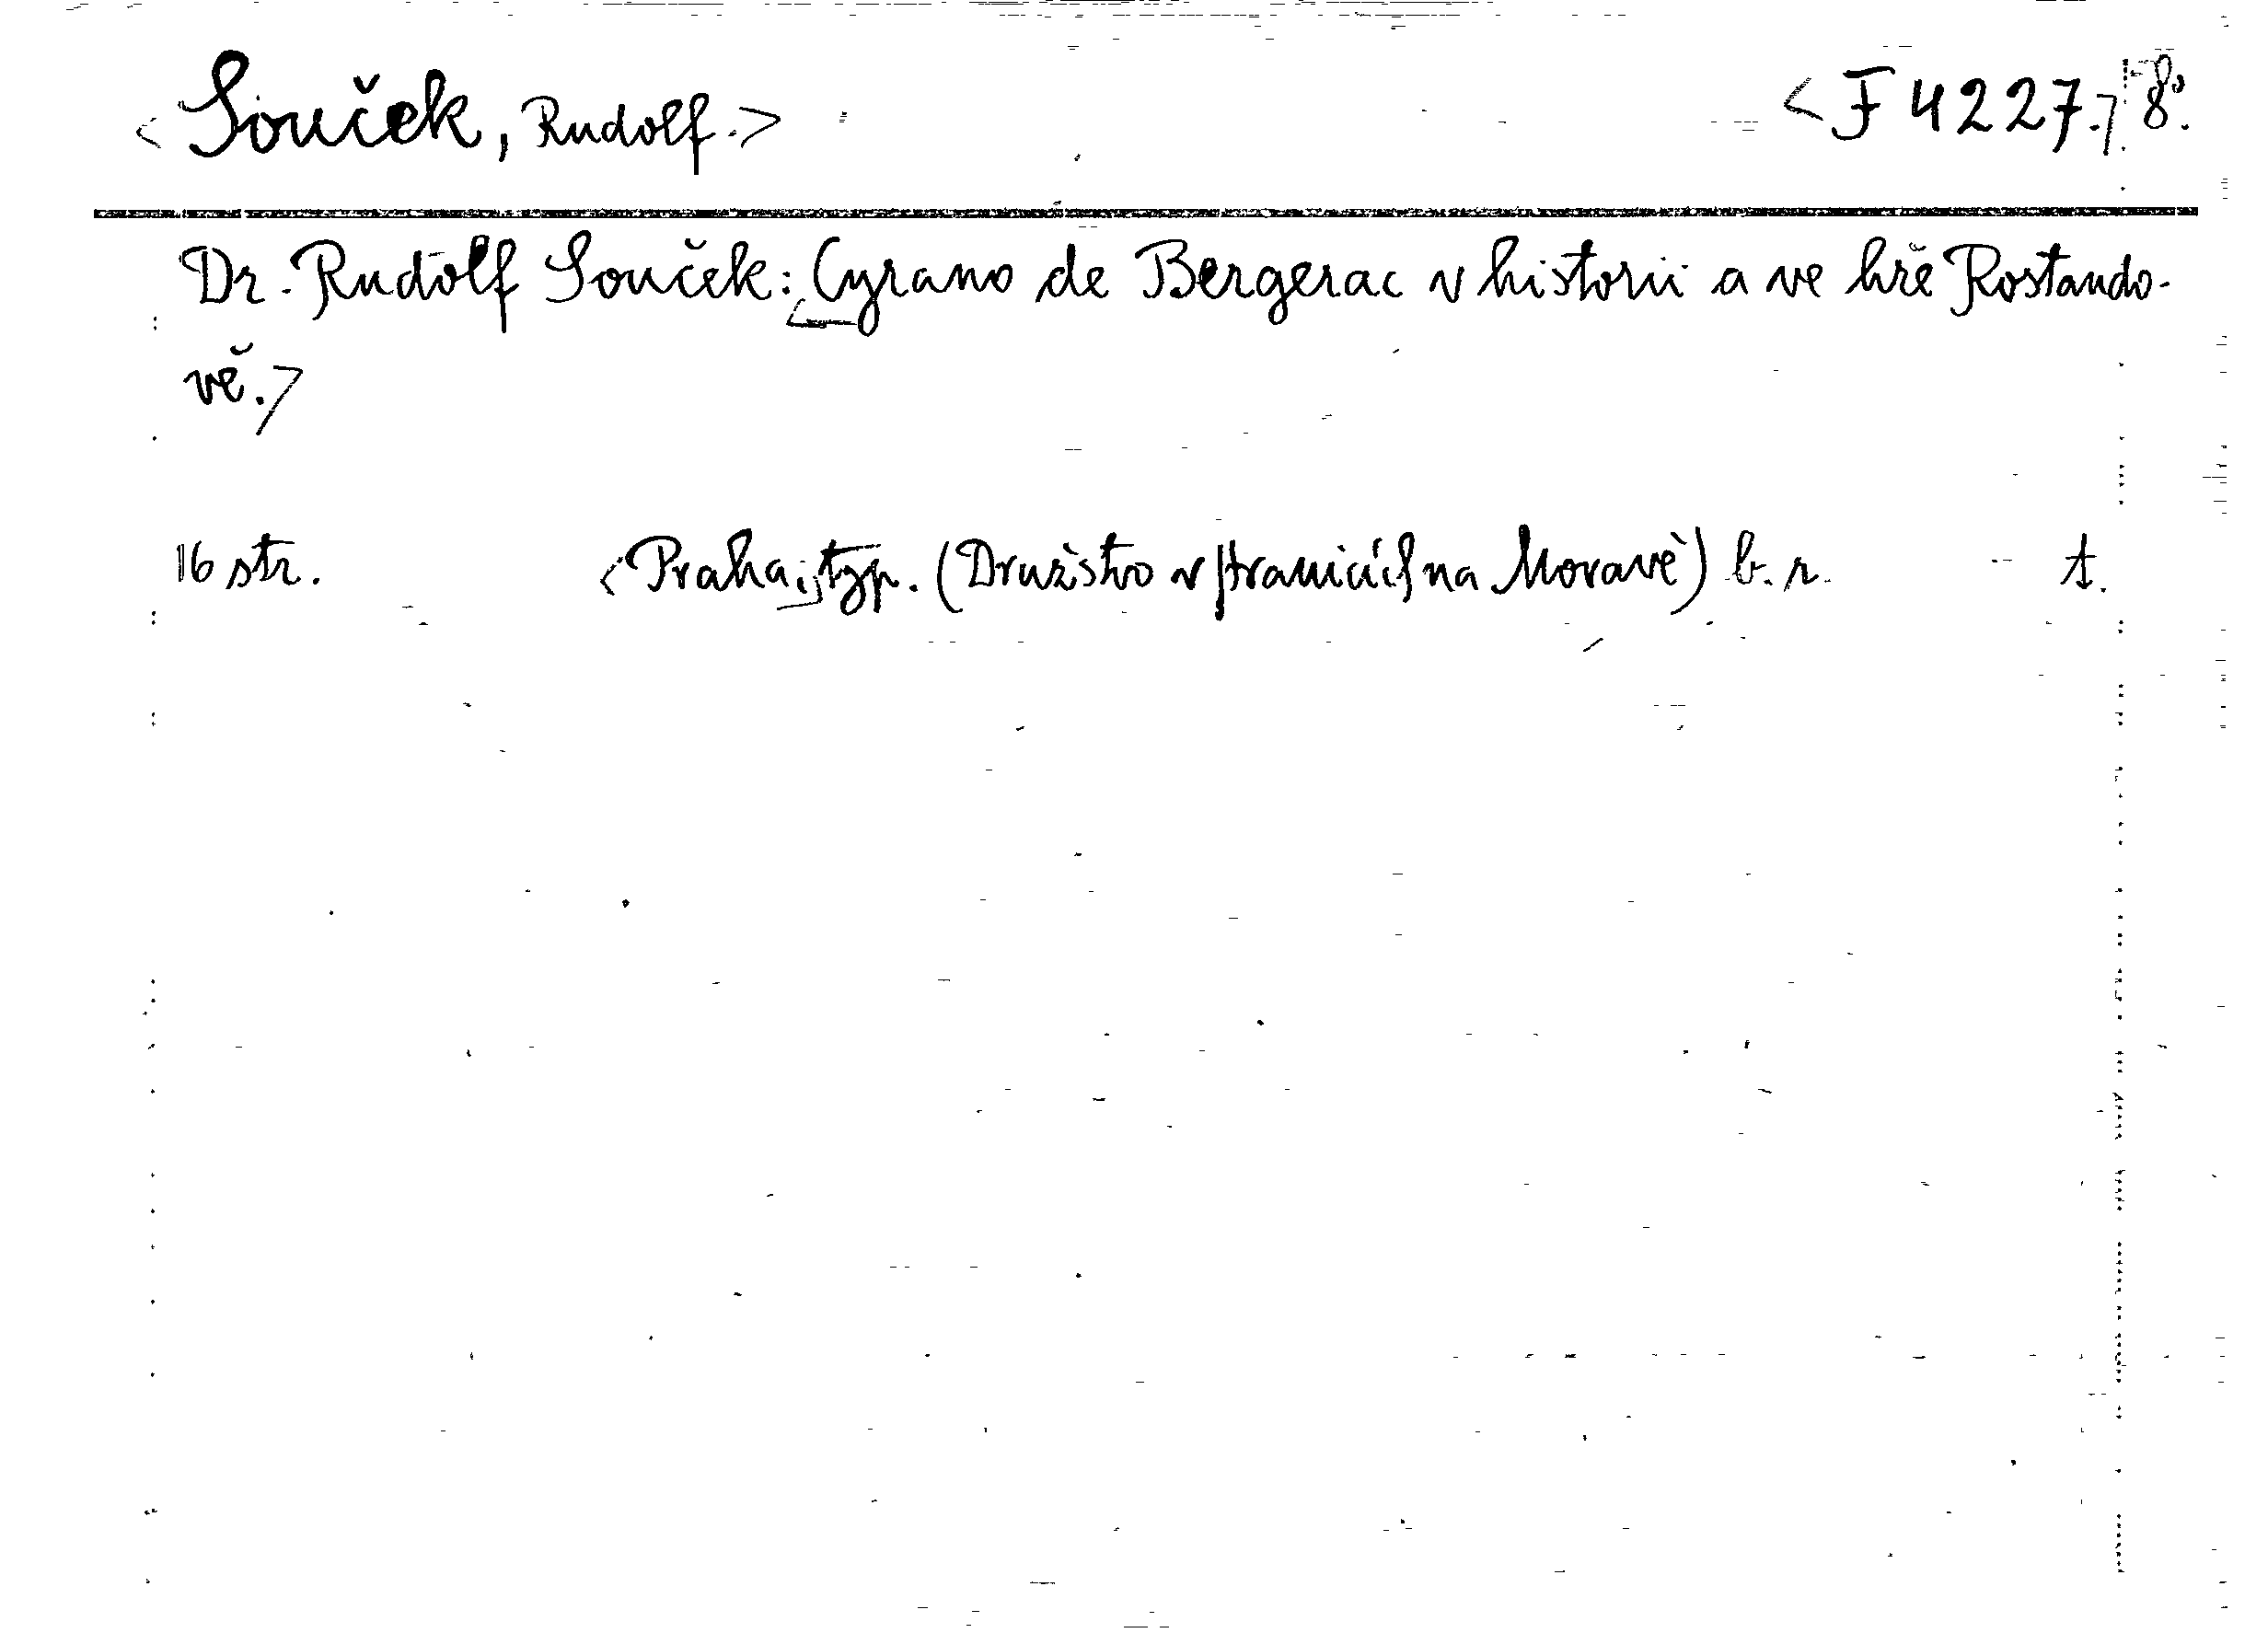 <Souček, Rudolf.> <F 4227.> 8°.
Dr. Rudolf Souček: <Cyrano de Bergerac v historii a ve hře Rostando-
vě.>
16 str. <Praha,> typ. (Družstvo v Hranicích na Moravě) b. r. t.